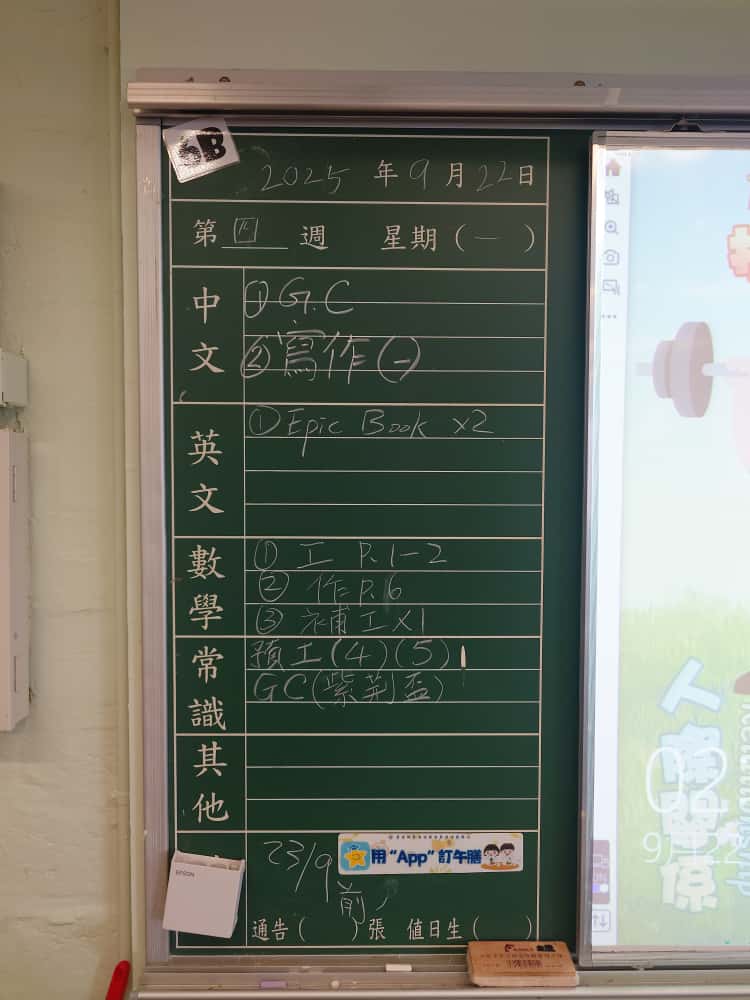 6B
2025 年 9 月 22 日
第 四 週 星期 ( 一 )
中文
① G.C
② 寫作(一)
英文
① Epic Book x2
數學
① 工 P.1-2
② 作 P.6
③ 補工 x1
常識
預工(4)(5)
GC(紫荊盃)
其他
23/9
前
用 "App" 訂午膳
EPSON
通告 ( ) 張 值日生 ( )
人際關係
02